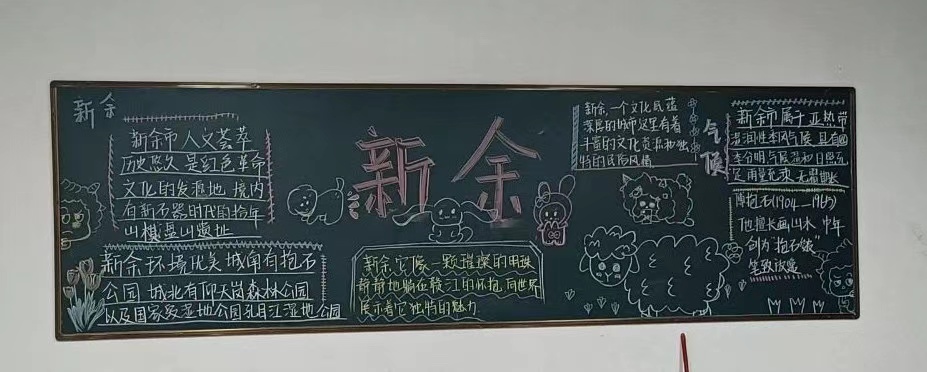 新余
新余市人文荟萃
历史悠久是红色革命
文化的发源地 境内
有新石器时代的拾年
山棋盘山遗址
新余环境优美城南有抱石
公园 城北有仰天岗森林公园
以及国家级湿地公园孔目江湿地公园
新余
新余它像一颗璀璨的明珠
静静地躺在赣江的怀抱 向世界
展示着它独特的魅力
新余,一个文化底蕴
深厚的城市这里有着
丰富的文化资源和独
特的民俗风情
气候
新余市属于亚热带
湿润性季风气候 具有四
季分明气候温和日照充
足 雨量充沛 无霜期长
傅抱石(1904—1965)
他擅长画山水 中年
创为"抱石皴"
笔致放逸